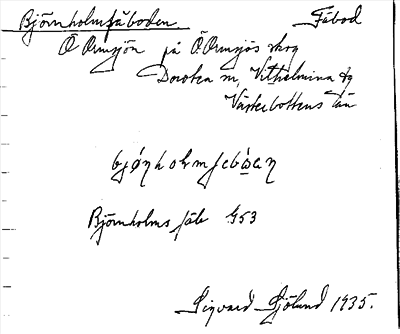 Björnholmfäboden Fäbod
Ö Ormsjön på Ö. Ormsjös skog
Dorotea sn, Vilhelmina tg
Västerbottens län
Björnholms fäb G53
Sigvard Sjölund 1935.